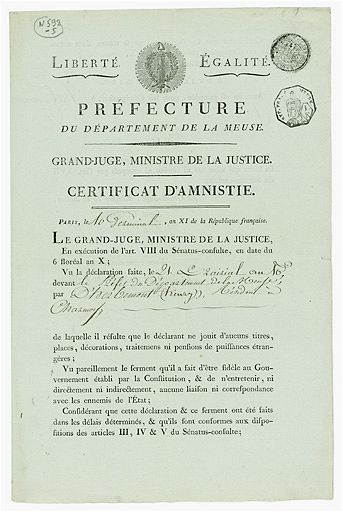 N 592
-5
LIBERTÉ. ÉGALITÉ.
PRÉFECTURE
DU DÉPARTEMENT DE LA MEUSE.
GRAND-JUGE, MINISTRE DE LA JUSTICE.
CERTIFICAT D'AMNISTIE.
PARIS, le 16 Germinal, an XI de la République française.
LE GRAND-JUGE, MINISTRE DE LA JUSTICE,
En exécution de l'art. VIII du Sénatus-consulte, en date du
6 floréal an X;
Vu la déclaration faite, le 21 Prairial an 10
devant le Préfet du Département de la Meuse,
par (Henry), Résident à
de laquelle il résulte que le déclarant ne jouit d'aucuns titres,
places, décorations, traitemens ni pensions de puissances étran-
gères;
Vu pareillement le serment qu'il a fait d'être fidèle au Gou-
vernement établi par la Constitution, & de n'entretenir, ni
directement ni indirectement, aucune liaison ni correspondance
avec les ennemis de l'État;
Considérant que cette déclaration & ce serment ont été faits
dans les délais déterminés, & qu'ils sont conformes aux dispo-
sitions des articles III, IV & V du Sénatus-consulte;